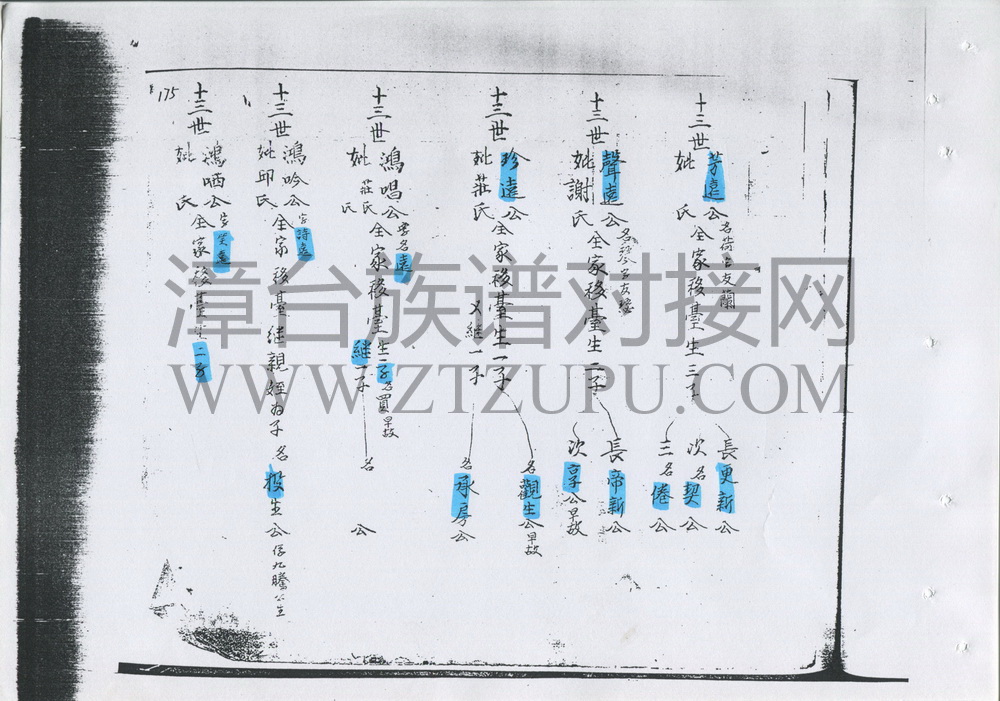 十三世
芳遠公
名荷官友蘭
妣 氏
全家移臺生三子
長更新公
次名契公
三名倦公
十三世
聲遠公
妣謝氏
全家移臺生二子
長帝新公
次享公早故
十三世
珍遠公
妣莊氏
全家移臺生一子
又継一子
名觀生公早故
名承房公
十三世
鴻唱公
名遠
妣莊氏
全家移臺生二子
名買早故
継一子
名 公
十三世
鴻吟公
字詩遠
妣邱氏
全家移臺継親姪為子名投生公係九騰公生
十三世
鴻哂公
妣 氏
全家移臺生二子
175
漳台族谱对接网
WWW.ZTZUPU.COM